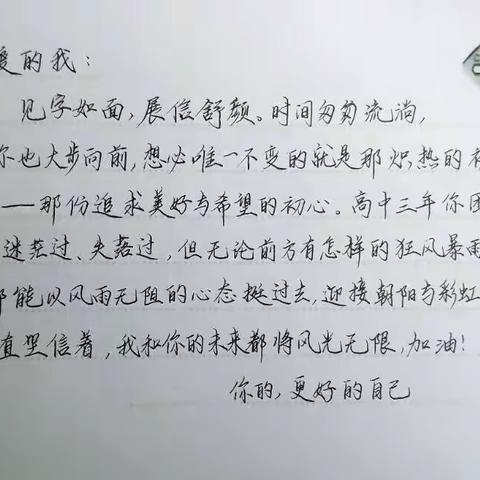 爱的我：
见字如面，展信舒颜。时间匆匆流淌，
你也大步向前，想必唯一不变的就是那炽热的初
——那份追求美好与希望的初心。高中三年你困
迷茫过、失落过，但无论前方有怎样的狂风暴雨
都能以风雨无阻的心态挺过去，迎接朝阳与彩虹
直坚信着，我和你的未来都将风光无限，加油！
你的，更好的自己